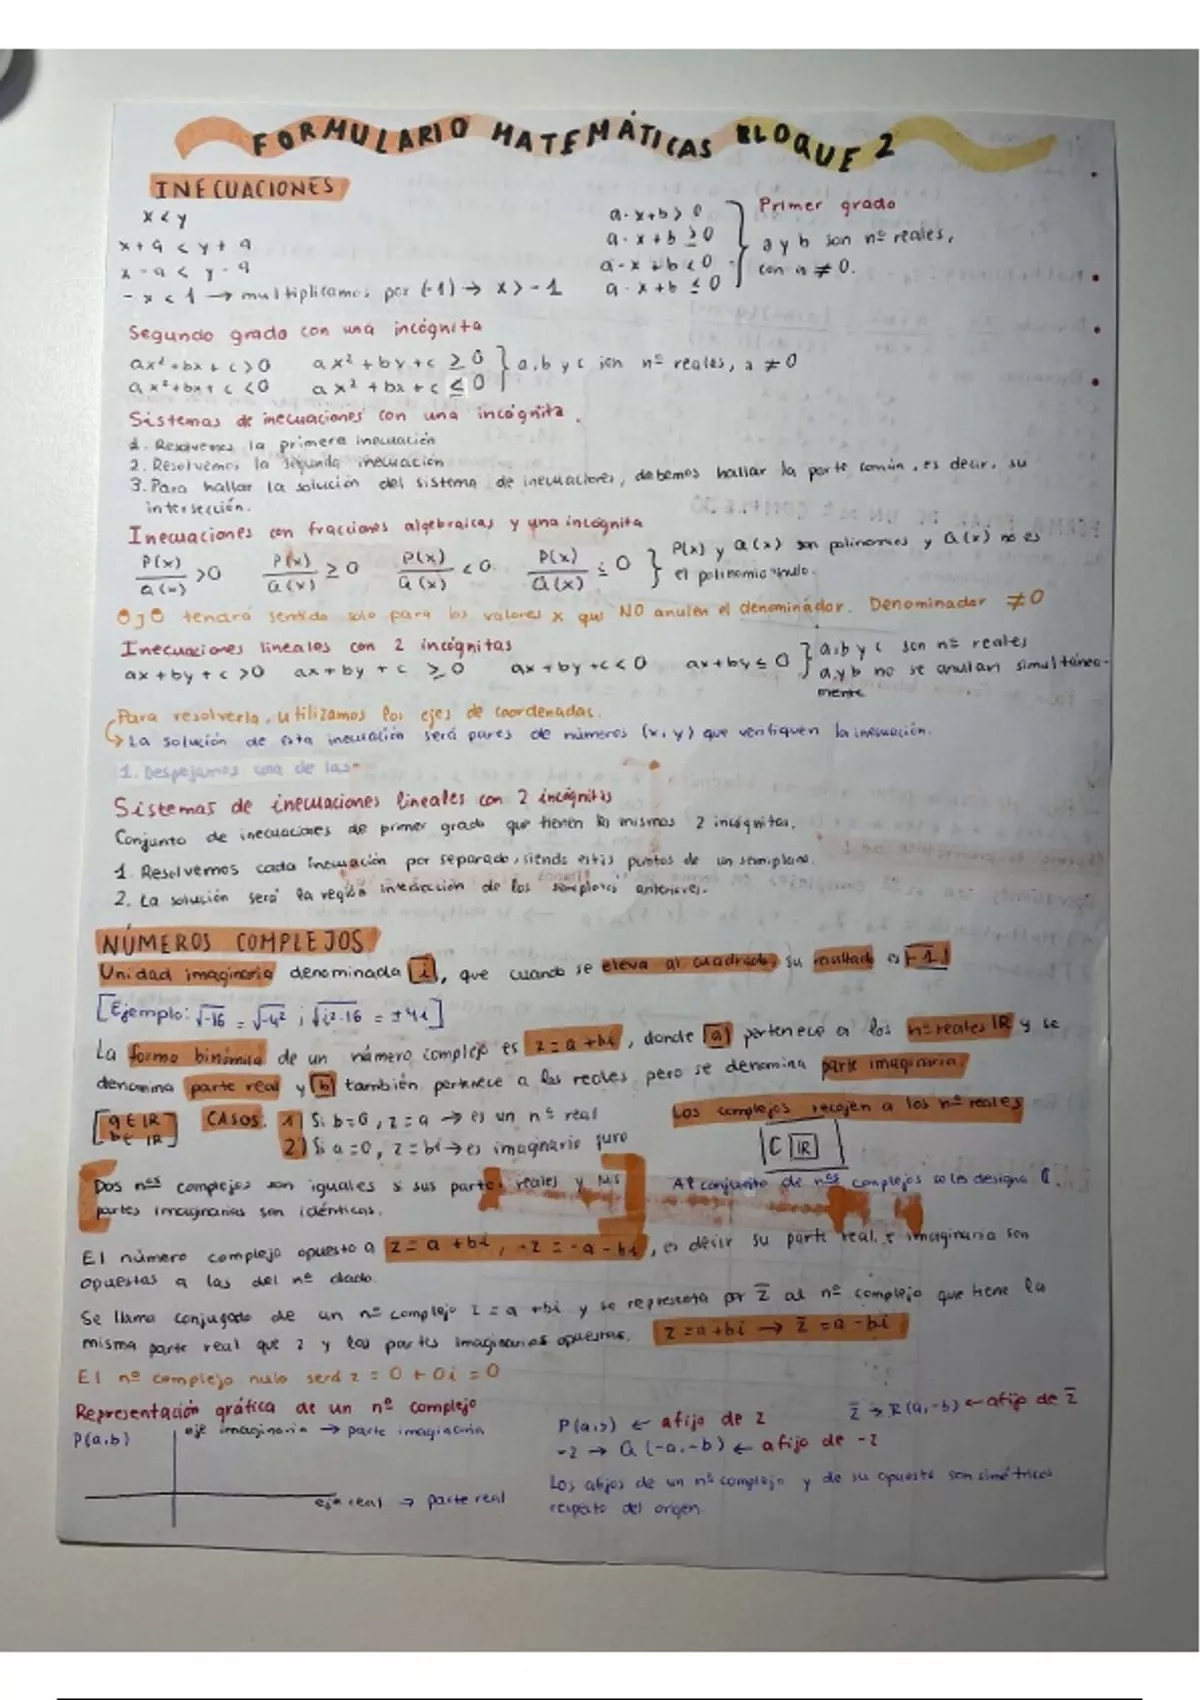 FORMULARIO MATEMÁTICAS BLOQUE 2
INECUACIONES
x < y
x + a < y + a
x - a < y - a
- x < 1 → multiplicamos por (-1) → x > -1
a·x+b > 0
a·x+b ≥ 0
a·x+b < 0
a·x+b ≤ 0
Primer grado
a y b son nº reales,
con a ≠ 0.
Segundo grado con una incógnita
ax²+bx+c > 0 ax²+bx+c ≥ 0 } a, b y c son nº reales, a ≠ 0
ax²+bx+c < 0 ax²+bx+c ≤ 0
Sistemas de inecuaciones con una incógnita.
1. Resolvemos la primera inecuación
2. Resolvemos la segunda inecuación
3. Para hallar la solución del sistema de inecuaciones, debemos hallar la parte común, es decir, su
intersección.
Inecuaciones con fracciones algebraicas y una incógnita
P(x)/Q(x) > 0 P(x)/Q(x) ≥ 0 P(x)/Q(x) < 0 P(x)/Q(x) ≤ 0 } P(x) y Q(x) son polinomios y Q(x) no es
el polinomio nulo.
OJO tendrá sentido solo para los valores x que NO anulen el denominador. Denominador ≠ 0
Inecuaciones lineales con 2 incógnitas
ax + by + c > 0 ax + by + c ≥ 0 ax + by + c < 0 ax + by ≤ 0 } a, b y c son nº reales
a y b no se anulan simultánea-
mente
Para resolverla, utilizamos los ejes de coordenadas.
↳ La solución de esta inecuación será pares de números (x, y) que verifiquen la inecuación.
1. Despejamos una de las
Sistemas de inecuaciones lineales con 2 incógnitas
Conjunto de inecuaciones de primer grado que tienen las mismas 2 incógnitas.
1. Resolvemos cada inecuación por separado, siendo estas puntos de un semiplano.
2. La solución será la región intersección de los semiplanos anteriores.
NÚMEROS COMPLEJOS
Unidad imaginaria denominada i, que cuando se eleva al cuadrado, su resultado es -1.
[Ejemplo: √-16 = √-4² ; √i²·16 = ±4i]
La forma binómica de un número complejo es z = a + bi, donde a pertenece a los nº reales IR y se
denomina parte real y b también pertenece a los reales pero se denomina parte imaginaria.
[a ∈ IR
b ∈ IR]
CASOS: 1) Si b=0, z=a → es un nº real
2) Si a=0, z=bi → es imaginario puro
Los complejos recojen a los nº reales
C IR
Dos nºs complejos son iguales si sus partes reales y sus
partes imaginarias son idénticas.
Al conjunto de nºs complejos se les designa C.
El número complejo opuesto a z = a + bi, -z = -a - bi, es decir su parte real e imaginaria son
opuestas a las del nº dado.
Se llama conjugado de un nº complejo z = a + bi y se representa por z̄ al nº complejo que tiene la
misma parte real que z y las partes imaginarias opuestas. z = a + bi → z̄ = a - bi
El nº complejo nulo será z = 0 + 0i = 0
Representación gráfica de un nº complejo
P(a,b)
eje imaginario → parte imaginaria
eje real → parte real
P(a,b) ← afijo de z
-z → Q(-a,-b) ← afijo de -z
z̄ → R(a,-b) ← afijo de z̄
Los afijos de un nº complejo y de su opuesto son simétricos
respecto del origen.